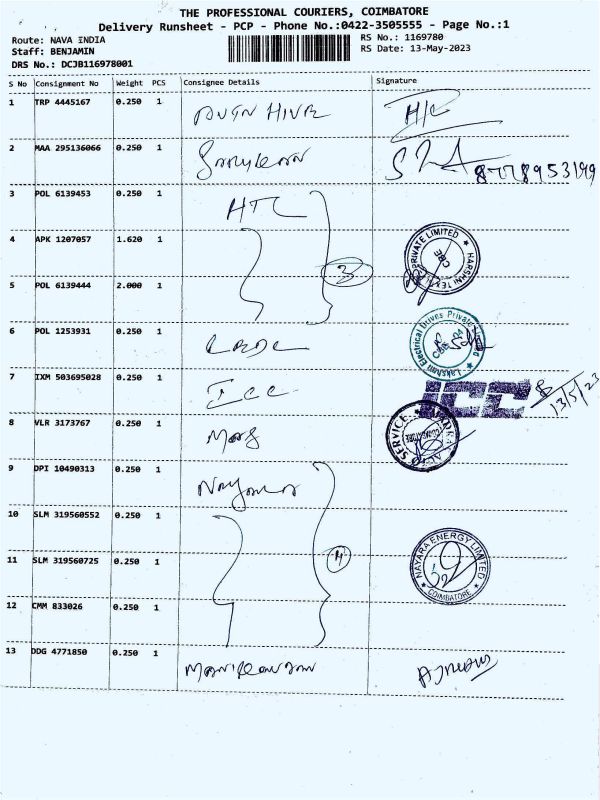 THE PROFESSIONAL COURIERS, COIMBATORE
Delivery Runsheet - PCP - Phone No.:0422-3505555 - Page No.:1
Route: NAVA INDIA
Staff: BENJAMIN
DRS No.: DCJB116978001
RS No.: 1169780
RS Date: 13-May-2023
S No Consignment No Weight PCS Consignee Details Signature
1 TRP 4445167 0.250 1
2 MAA 295136066 0.250 1 8778953199
3 POL 6139453 0.250 1 HTC
4 APK 1207057 1.620 1 3 PRIVATE LIMITED ★ HARSHAI TEX CBE
5 POL 6139444 2.000 1
6 POL 1253931 0.250 1 Lakshmi Electrical Drives Private Limited
7 IXM 503695028 0.250 1 ICC ICC 13/5/23
8 VLR 3173767 0.250 1 SERVICE
9 DPI 10490313 0.250 1 Nayara
10 SLM 319560552 0.250 1
11 SLM 319560725 0.250 1 4 NAYARA ENERGY LIMITED ★ COIMBATORE ★
12 CMM 833026 0.250 1
13 DDG 4771850 0.250 1 Manikandan